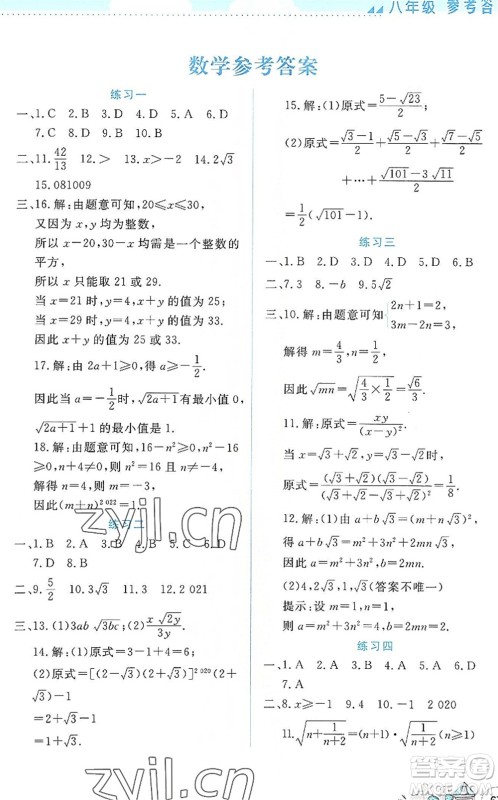 八年级 参考答
数学参考答案
练习一
一、1. C 2. B 3. D 4. D 5. A 6. D
7. C 8. D 9. B 10. B
二、11. 42/13 12. > 13. x>-2 14. 2√3
15. 081009
三、16. 解：由题意可知，20≤x≤30，
又因为 x，y 均为整数，
所以 x-20，30-x 均需是一个整数的
平方，
所以 x 只能取 21 或 29.
当 x=21 时，y=4，x+y 的值为 25.
当 x=29 时，y=4，x+y 的值为 33.
因此 x+y 的值为 25 或 33.
17. 解：由 2a+1≥0，得 a≥-1/2.
因此当 a=-1/2 时，√(2a+1) 有最小值 0，
√(2a+1)+1 的最小值是 1.
18. 解：由题意可知，16-n²≥0，n²-16
≥0，n+4≠0，则 n²=16，n≠-4.
解得 n=4，则 m=-3.
因此，(m+n)^2 022=1.
练习二
一、1. B 2. A 3. D 4. D 5. D 6. D
7. B 8. A
二、9. 5/2 10. 3 11. 3 12. 2 021
三、13. (1)3ab√(3bc); (2) x√(2y)/3y.
14. 解：(1)原式=3-1+4=6;
(2)原式=[(2-√3)(2+√3)]^2 020 ×
(2+√3)-√3-1
=2+√3-√3-1
=1.
15. 解：(1)原式=(5-√23)/2;
(2)原式=(√3-1)/2+(√5-√3)/2+(√7-√5)/2
+⋯+(√101-3√11)/2
=1/2(√101-1).
练习三
一、1. B 2. D 3. D 4. C 5. B 6. D
二、7. 3 8. -b 9. 5√2
三、10. 解：由题意可知{2n+1=2，
3m-2n=3.
解得 m=4/3，n=1/2，
因此 √(mn)=√(4/3×1/2)=√6/3.
11. 解：原式=xy/(x-y)².
因此，原式=
(√3+√2)(√3-√2)/(√3+√2-√3+√2)²=1/8.
12. 解：(1)由 a+b√3=(m+n√3)²，
得 a+b√3=m²+3n²+2mn√3，
因此 a=m²+3n²，b=2mn.
(2)4，2，1，1(答案不唯一)
提示：设 m=1，n=1，
因此 a=m²+3n²=4，b=2mn=2.
练习四
一、1. A 2. C 3. D 4. B 5. A 6. D
7. A
二、8. x≥-1 9. 4 10. -1 2 020
11. √(n+1/(n+2))=(n+1)√(1/(n+2))(n≥1)
zyjl.cn
zyjl.cn
答案圈